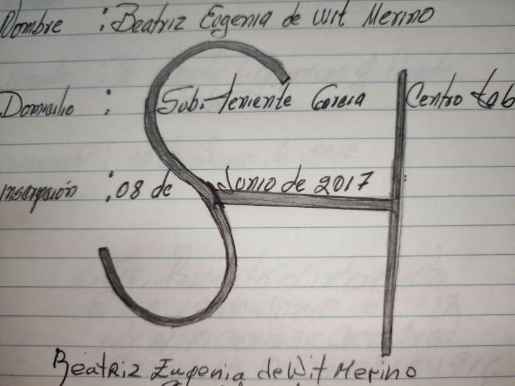 Nombre : Beatriz Eugenia de Wit Merino
Domicilio : Sub-teniente Garcia Centro
Inscripción : 08 de Junio de 2017
SH
Beatriz Eugenia de Wit Merino